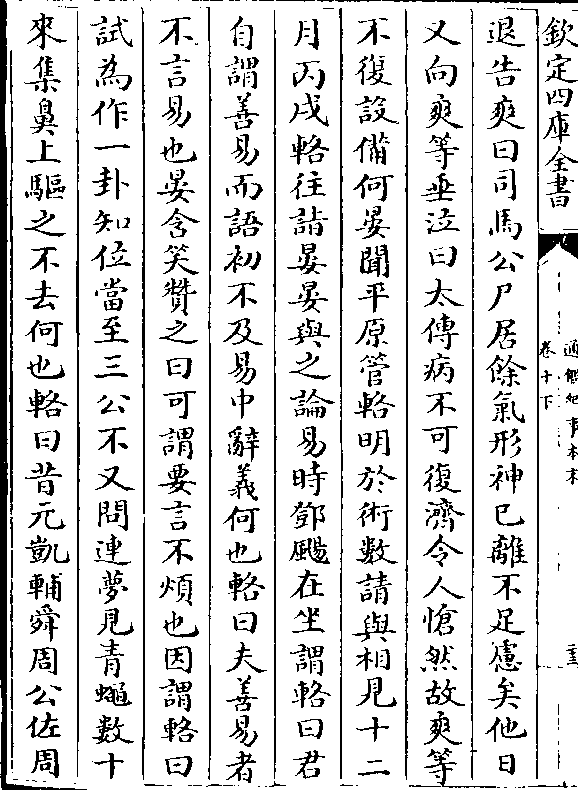 欽定四庫全書
通鑑紀事本末
卷十下
退告爽曰司馬公尸居餘氣形神已離不足慮矣他日
又向爽等垂泣曰太傅病不可復濟令人愴然故爽等
不復設備何晏聞平原管輅明於術數請與相見十二
月丙戌輅往詣晏晏與之論易時鄧颺在坐謂輅曰君
自謂善易而語初不及易中辭義何也輅曰夫善易者
不言易也晏含笑贊之曰可謂要言不煩也因謂輅曰
試為作一卦知位當至三公不又問連夢見青蠅數十
來集鼻上驅之不去何也輅曰昔元凱輔舜周公佐周